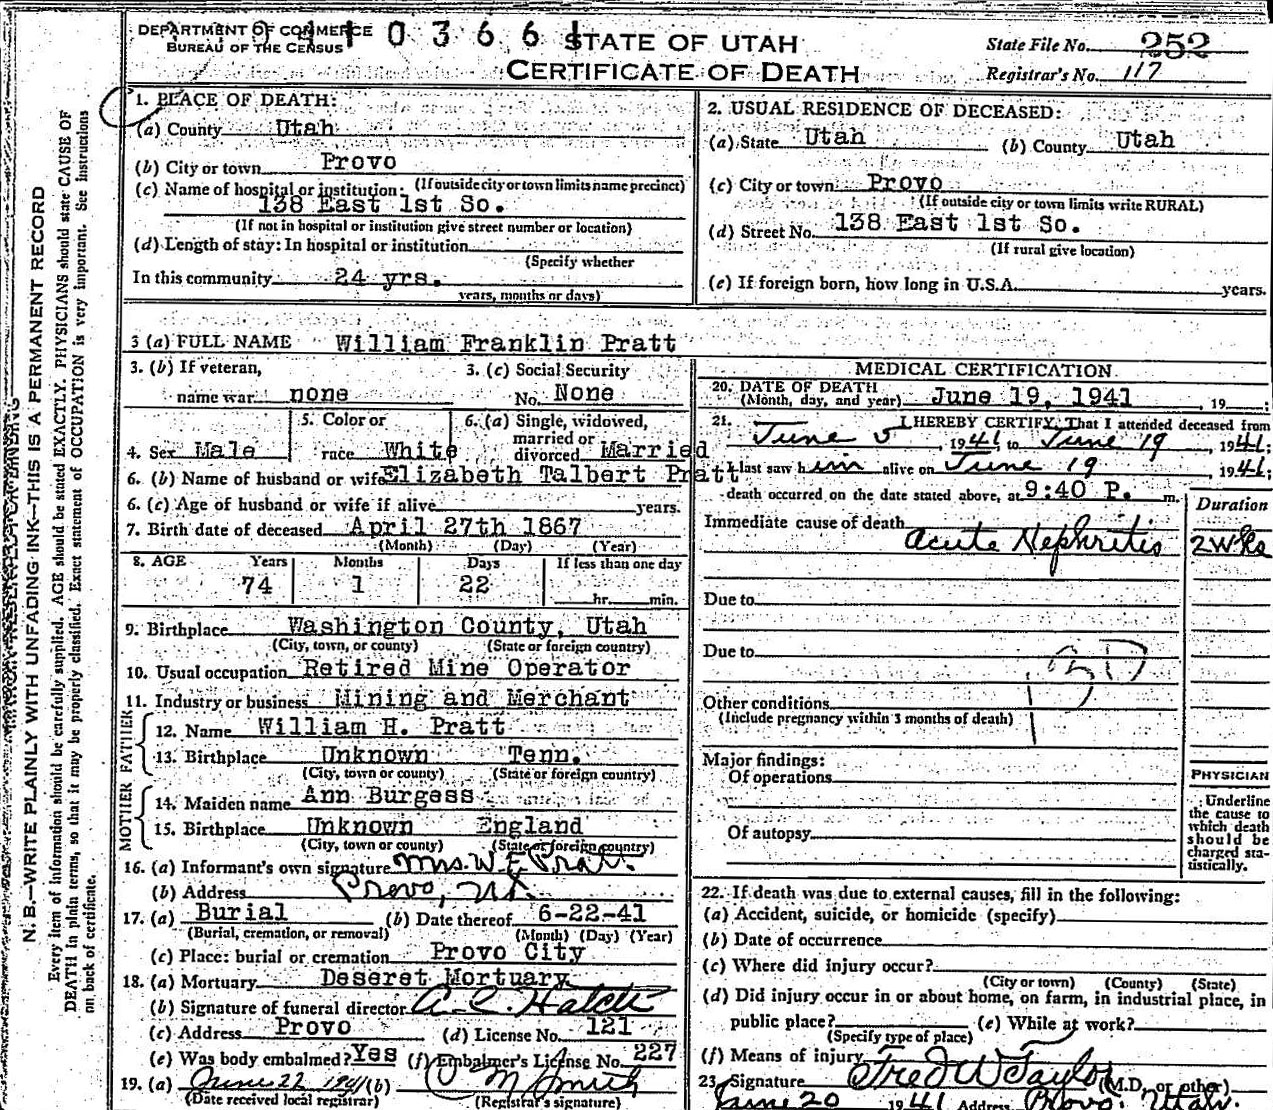 DEPARTMENT OF COMMERCE
BUREAU OF THE CENSUS
0 3 6 6 1
STATE OF UTAH
CERTIFICATE OF DEATH
State File No. 252
Registrar's No. 117
N. B.—WRITE PLAINLY WITH UNFADING INK—THIS IS A PERMANENT RECORD
Every item of information should be carefully supplied. AGE should be stated EXACTLY. PHYSICIANS should state CAUSE OF
DEATH in plain terms, so that it may be properly classified. Exact statement of OCCUPATION is very important. See instructions
on back of certificate.
1. PLACE OF DEATH:
(a) County Utah
(b) City or town Provo
(If outside city or town limits name precinct)
(c) Name of hospital or institution:
138 East 1st So.
(If not in hospital or institution give street number or location)
(d) Length of stay: In hospital or institution
(Specify whether
In this community 24 yrs.
years, months or days)
2. USUAL RESIDENCE OF DECEASED:
(a) State Utah (b) County Utah
(c) City or town Provo
(If outside city or town limits write RURAL)
(d) Street No. 138 East 1st So.
(If rural give location)
(e) If foreign born, how long in U.S.A. years.
3 (a) FULL NAME William Franklin Pratt
3. (b) If veteran, name war none
3. (c) Social Security No. None
4. Sex Male
5. Color or race White
6. (a) Single, widowed, married or divorced Married
6. (b) Name of husband or wife Elizabeth Talbert Pratt
6. (c) Age of husband or wife if alive years.
7. Birth date of deceased April 27th 1867
(Month) (Day) (Year)
8. AGE Years Months Days If less than one day
74 1 22 hr. min.
9. Birthplace Washington County, Utah
(City, town, or county) (State or foreign country)
10. Usual occupation Retired Mine Operator
11. Industry or business Mining and Merchant
FATHER
12. Name William H. Pratt
13. Birthplace Unknown Tenn.
(City, town or county) (State or foreign country)
MOTHER
14. Maiden name Ann Burgess
15. Birthplace Unknown England
(City, town or county) (State or foreign country)
16. (a) Informant's own signature Mrs. W F Pratt
(b) Address Provo, Ut.
17. (a) Burial (b) Date thereof 6-22-41
(Burial, cremation, or removal) (Month) (Day) (Year)
(c) Place: burial or cremation Provo City
18. (a) Mortuary Deseret Mortuary
(b) Signature of funeral director A. C. Hatch
(c) Address Provo (d) License No. 121
(e) Was body embalmed? Yes (f) Embalmer's License No. 227
19. (a) June 22 1941 (b)
(Date received local registrar) (Registrar's signature)
MEDICAL CERTIFICATION
20. DATE OF DEATH
(Month, day, and year) June 19, 1941, 19 ;
21. I HEREBY CERTIFY, That I attended deceased from
June 5, 1941, to June 19, 1941;
I last saw him alive on June 19 1941;
death occurred on the date stated above, at 9:40 P. m.
Duration
Immediate cause of death
Acute Nephritis 2 wks
Due to
Due to
130
Other conditions
(Include pregnancy within 3 months of death)
Major findings:
Of operations
Of autopsy
PHYSICIAN
Underline
the cause to
which death
should be
charged sta-
tistically.
22. If death was due to external causes, fill in the following:
(a) Accident, suicide, or homicide (specify)
(b) Date of occurrence
(c) Where did injury occur?
(City or town) (County) (State)
(d) Did injury occur in or about home, on farm, in industrial place, in
public place? (e) While at work?
(Specify type of place)
(f) Means of injury
23. Signature Fred W Taylor (M.D. or other)
June 20 1941 Address Provo, Utah.